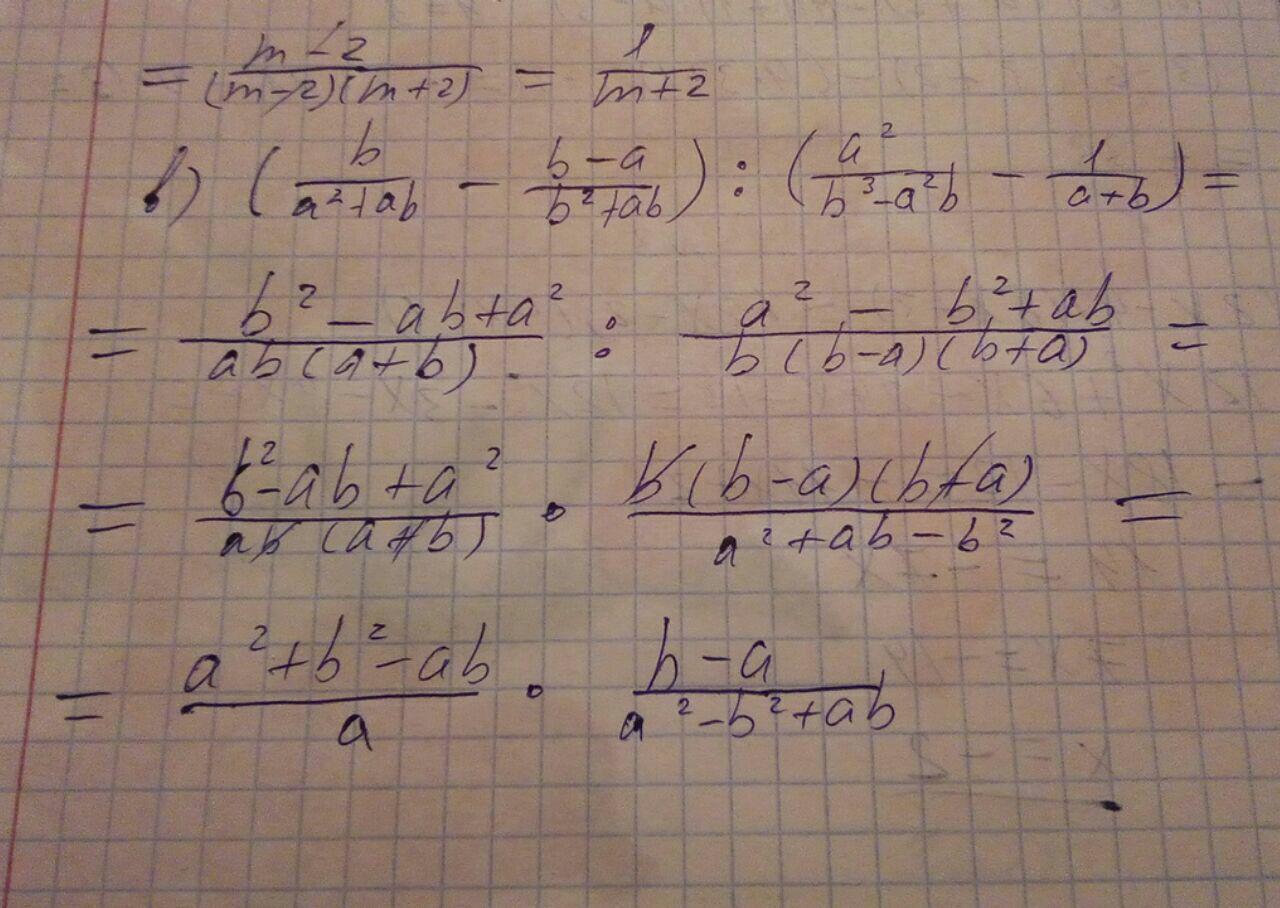 = (m-2)/((m-2)(m+2)) = 1/(m+2)
в) (b/(a²+ab) - (b-a)/(b²+ab)) : (a²/(b³-a²b) - 1/(a+b)) =
= (b² - ab+a²)/(ab(a+b)) : (a² - b²+ab)/(b(b-a)(b+a)) =
= (b²-ab+a²)/(ab(a+b)) · (b(b-a)(b+a))/(a²+ab-b²) =
= (a²+b²-ab)/a · (b-a)/(a²-b²+ab)